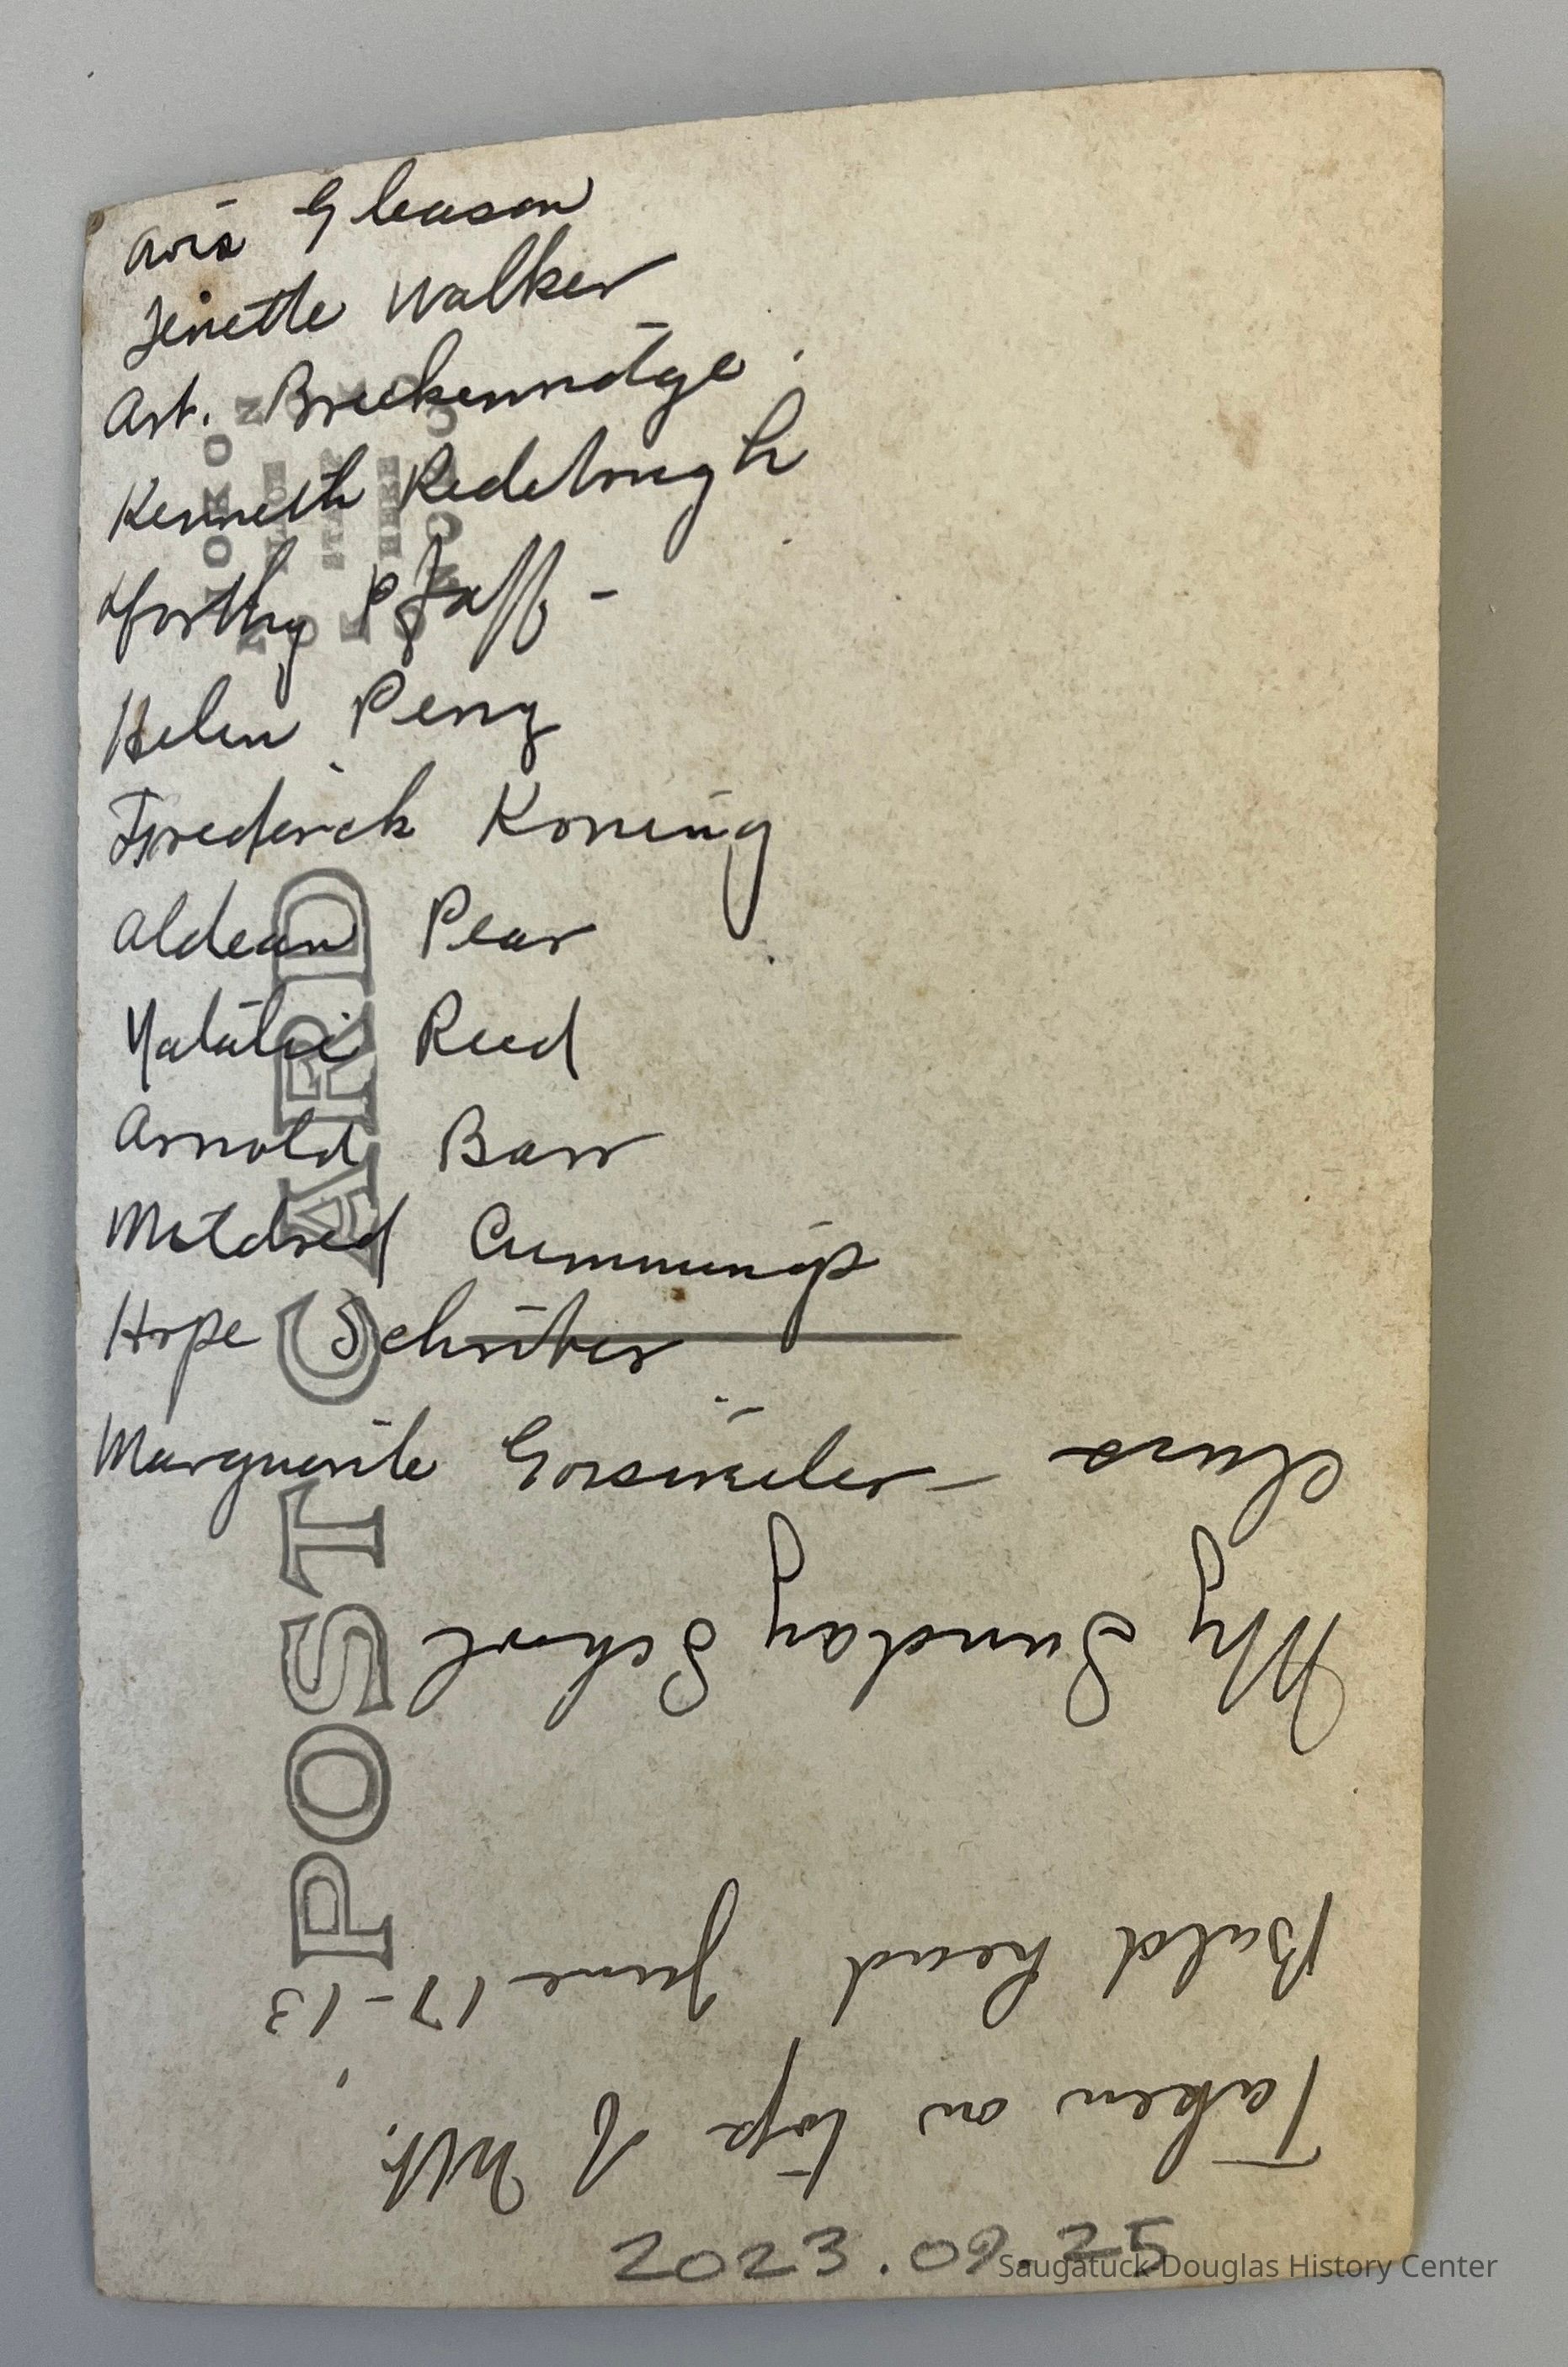 Avis Gleason
Jenette Walker
Art. Breckenridge
Kenneth Redebough
Worthy Pfaff -
Helen Perry
Frederick Koning
Aldean Pear
Natalie Reed
Arnold Barr
Mildred Cummings
Hope Schriber
Marguerite
POST CARD
NOKO
Taken on top of Mt.
Bald head June 17-13
My Sunday School
Class
2023.09.25
Saugatuck-Douglas History Center